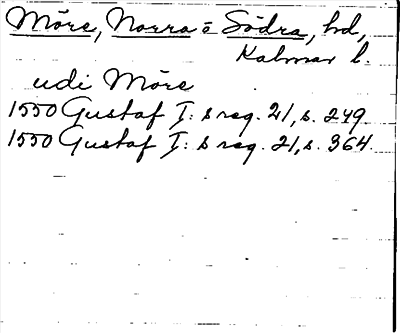 Möre, Norra o Södra, hd,
Kalmar l.
udi Möre
1550 Gustaf I: s reg. 21, s. 249.
1550 Gustaf I: s reg. 21, s. 364.